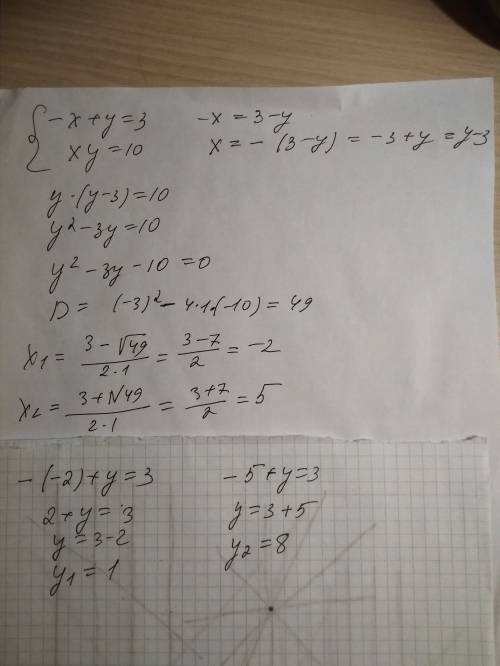 { -x+y=3    -x = 3-y
xy=10    x= - (3-y) = -3+y = y-3
y·(y-3)=10
y²-3y=10
y²-3y-10=0
D = (-3)²-4·1·(-10)=49
x₁ = (3-√49)/(2·1) = (3-7)/2 = -2
x₂ = (3+√49)/(2·1) = (3+7)/2 = 5
-(-2)+y=3    -5+y=3
2+y=3    y=3+5
y=3-2    y₂=8
y₁=1